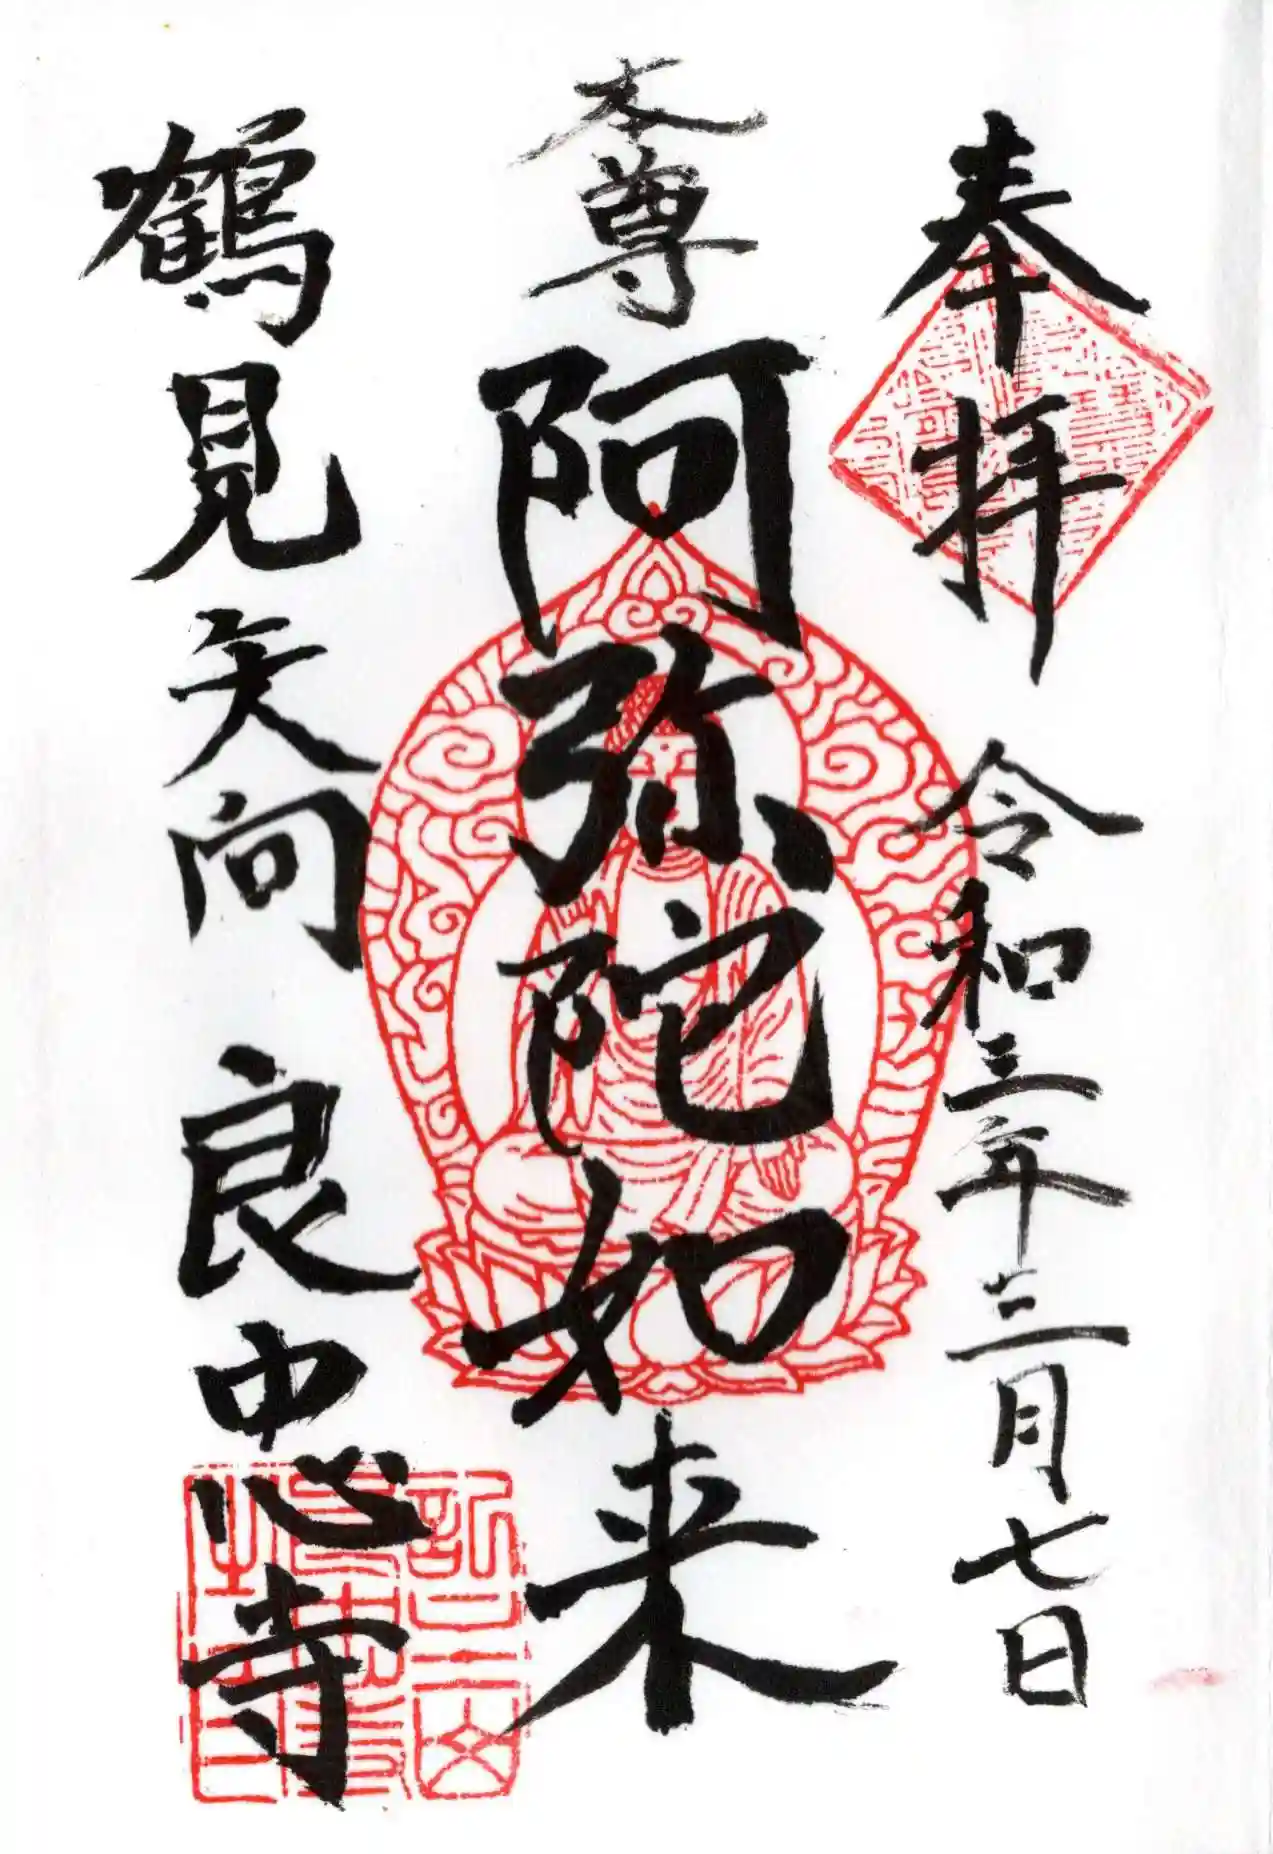 奉拝 令和三年三月七日
本尊 阿弥陀如来
鶴見矢向 良忠寺